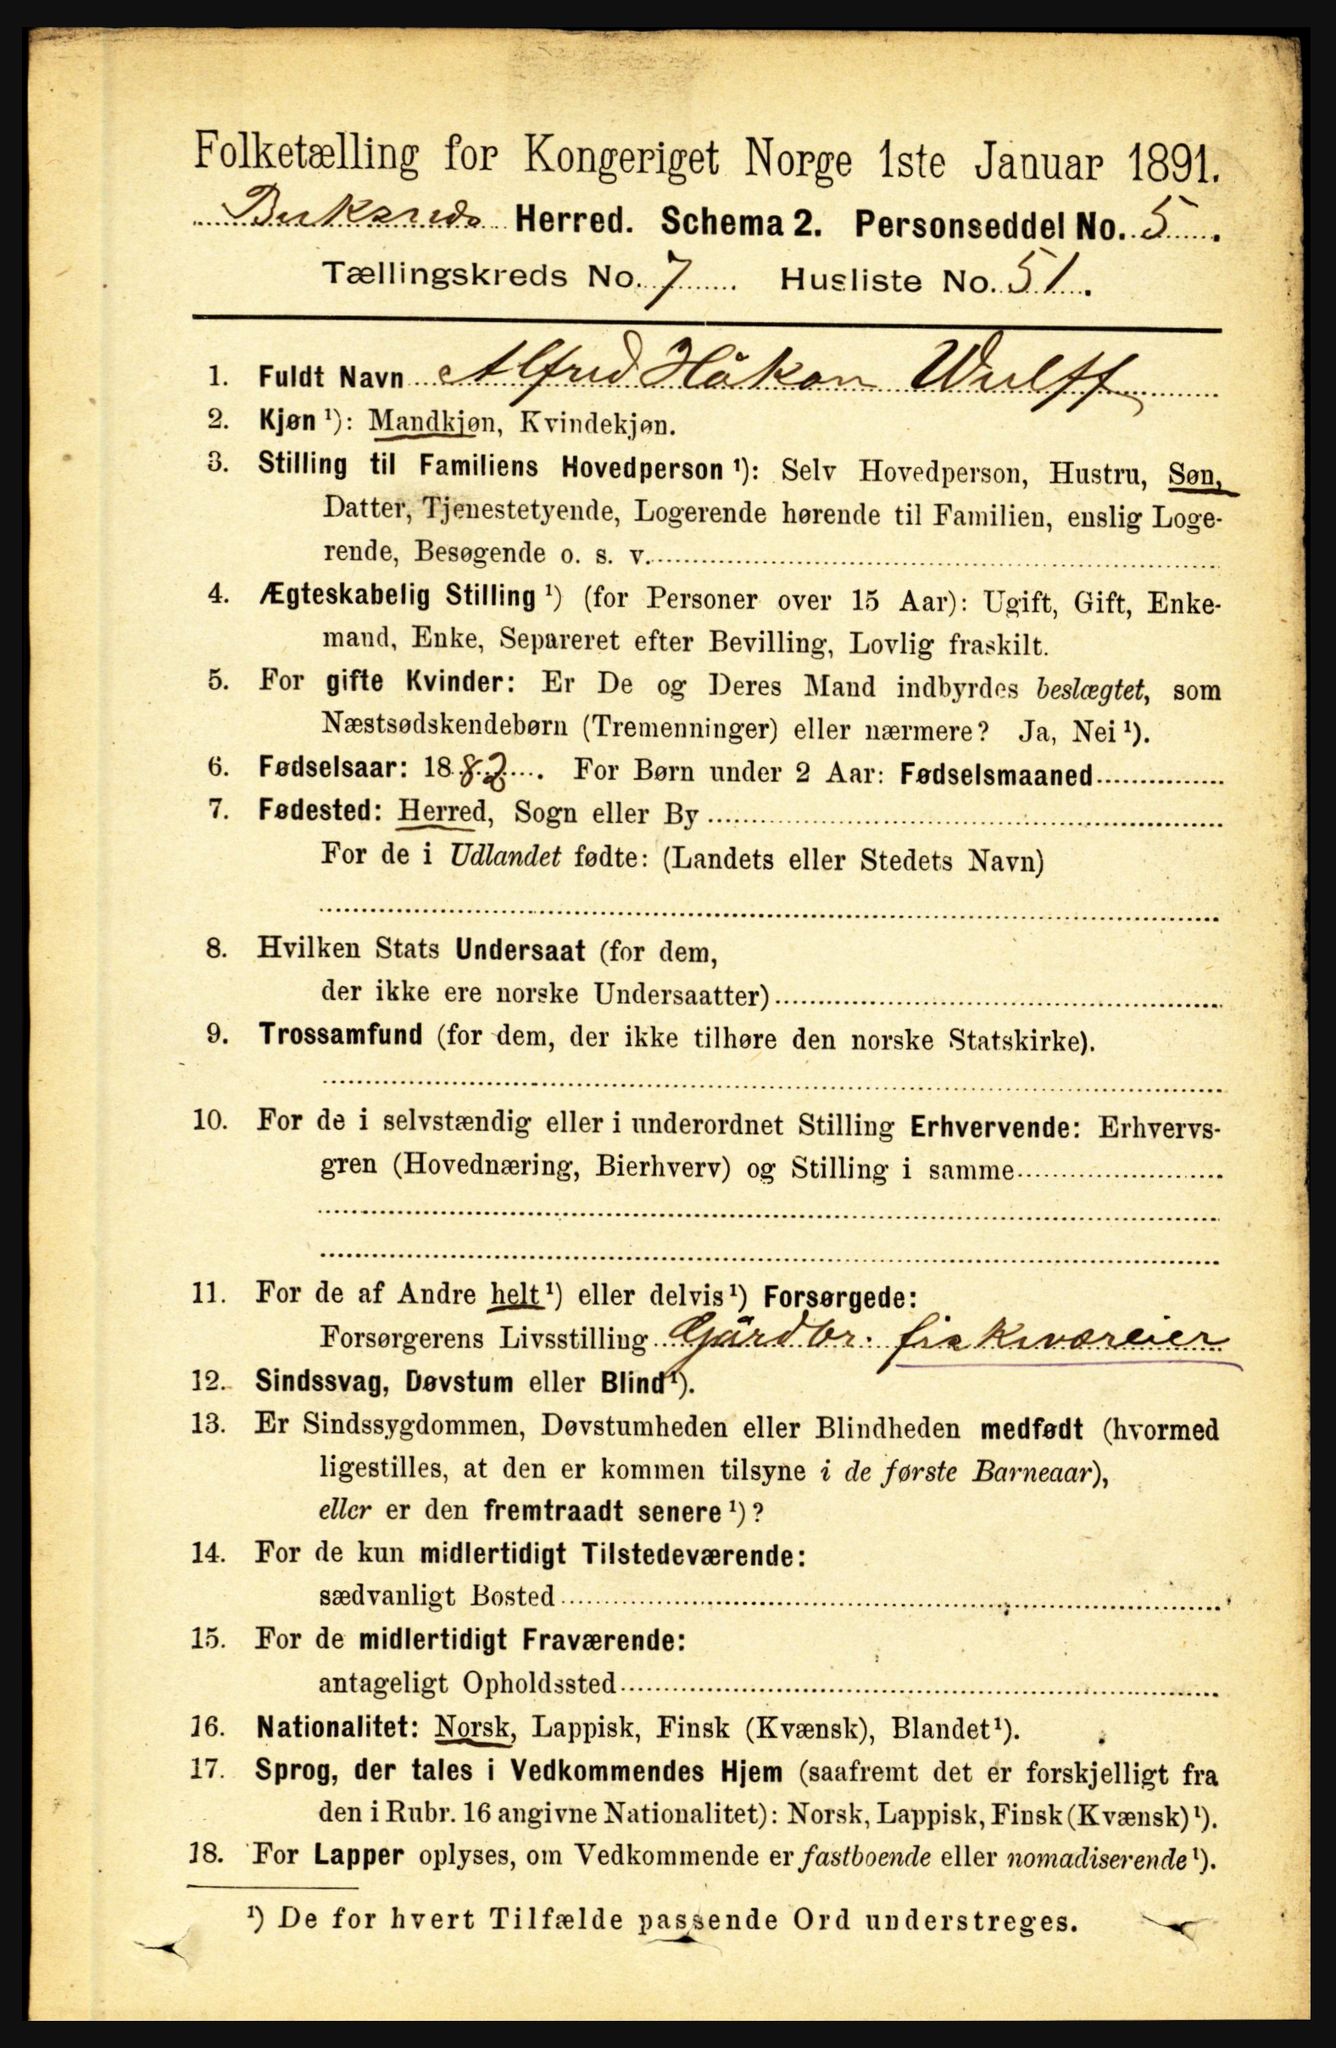 Folketælling for Kongeriget Norge 1ste Januar 1891.
Buksnes Herred. Schema 2. Personseddel No. 5.
Tællingskreds No. 7. Husliste No. 51.
1. Fuldt Navn Alfred Håkon Wulff
2. Kjøn¹): Mandkjøn, Kvindekjøn.
3. Stilling til Familiens Hovedperson¹): Selv Hovedperson, Hustru, Søn,
Datter, Tjenestetyende, Logerende hørende til Familien, enslig Loge-
rende, Besøgende o. s. v.
4. Ægteskabelig Stilling¹) (for Personer over 15 Aar): Ugift, Gift, Enke-
mand, Enke, Separeret efter Bevilling, Lovlig fraskilt.
5. For gifte Kvinder: Er De og Deres Mand indbyrdes beslægtet, som
Næstsødskendebørn (Tremenninger) eller nærmere? Ja, Nei¹).
6. Fødselsaar: 1882. For Børn under 2 Aar: Fødselsmaaned
7. Fødested: Herred, Sogn eller By
For de i Udlandet fødte: (Landets eller Stedets Navn)
8. Hvilken Stats Undersaat (for dem,
der ikke ere norske Undersaatter)
9. Trossamfund (for dem, der ikke tilhøre den norske Statskirke).
10. For de i selvstændig eller i underordnet Stilling Erhvervende: Erhvervs-
gren (Hovednæring, Bierhverv) og Stilling i samme
11. For de af Andre helt¹) eller delvis¹) Forsørgede:
Forsørgerens Livsstilling Gårdbr. fiskeværeier
12. Sindssvag, Døvstum eller Blind¹).
13. Er Sindssygdommen, Døvstumheden eller Blindheden medfødt (hvormed
ligestilles, at den er kommen tilsyne i de første Barneaar),
eller er den fremtraadt senere¹)?
14. For de kun midlertidigt Tilstedeværende:
sædvanligt Bosted
15. For de midlertidigt Fraværende:
antageligt Opholdssted
16. Nationalitet: Norsk, Lappisk, Finsk (Kvænsk), Blandet¹).
17. Sprog, der tales i Vedkommendes Hjem (saafremt det er forskjelligt fra
den i Rubr. 16 angivne Nationalitet): Norsk, Lappisk, Finsk (Kvænsk)¹).
18. For Lapper oplyses, om Vedkommende er fastboende eller nomadiserende¹).
¹) De for hvert Tilfælde passende Ord understreges.